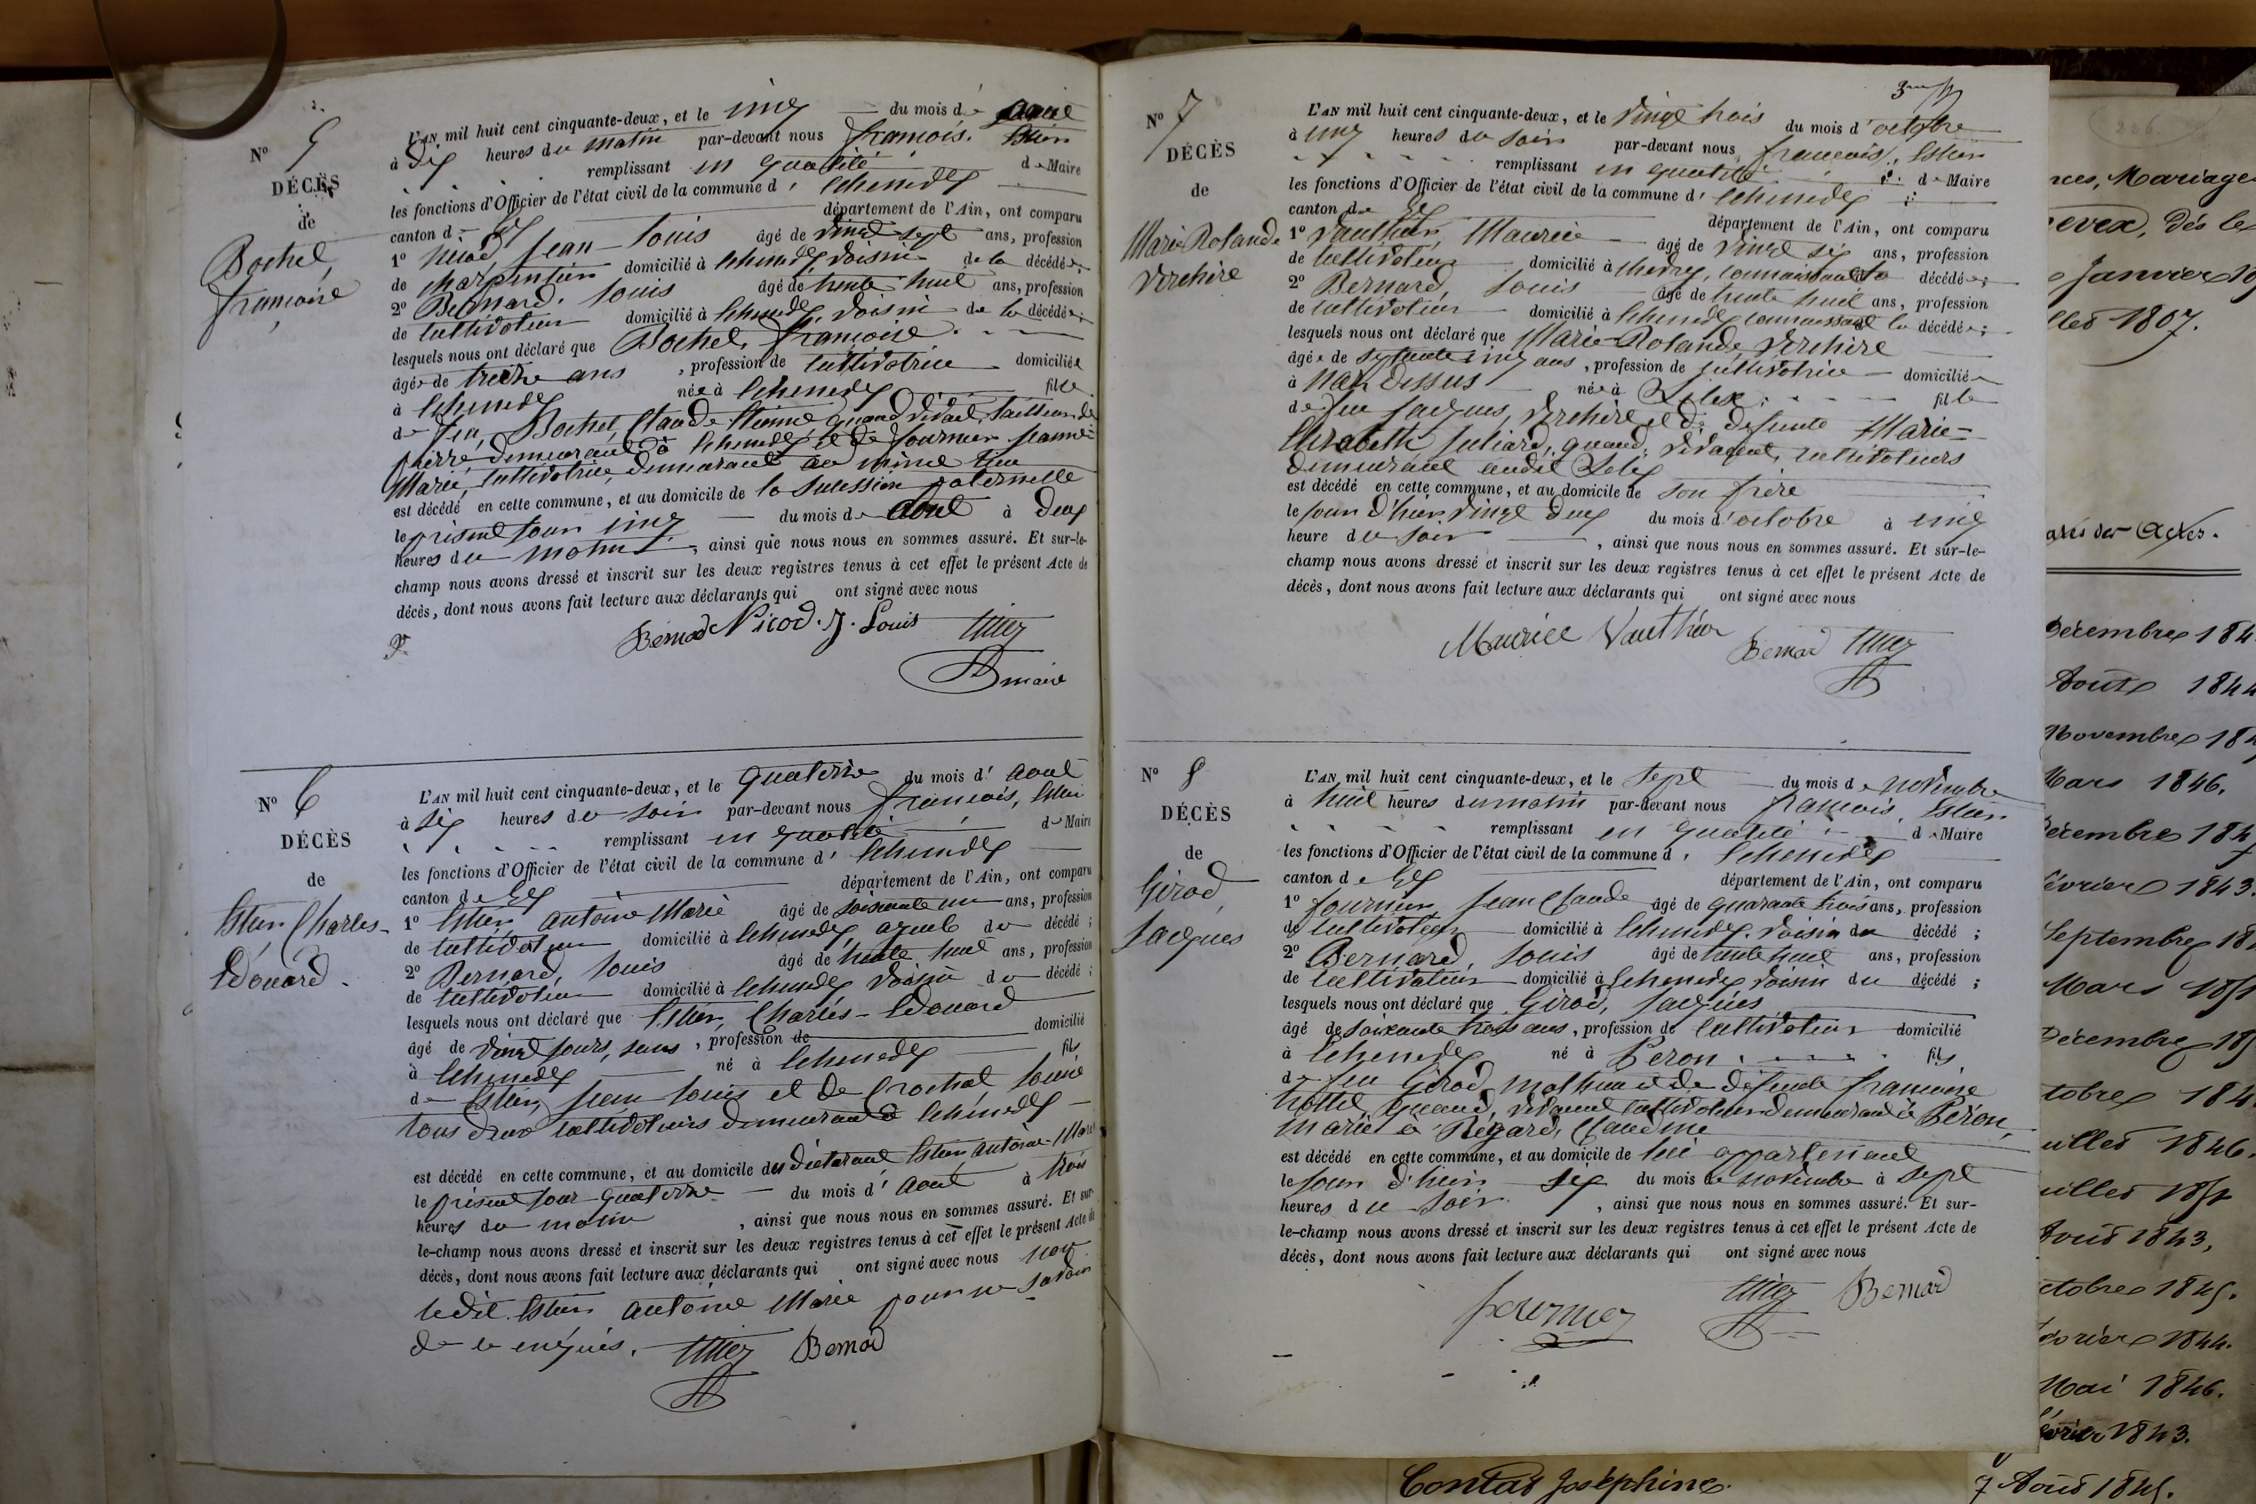 N° 5
DÉCÈS
de
Bochet,
françoise
L'AN mil huit cent cinquante-deux, et le cinq du mois d' aout
à dix heures du matin par-devant nous françois, Estier
remplissant en qualité de Maire
les fonctions d'Officier de l'état civil de la commune d' Echenevex
canton de Gex département de l'Ain, ont comparu
1° Nicod, Jean-Louis âgé de vingt sept ans, profession
de charpentier domicilié à Echenevex, voisin de la décédée;
2° Bernard, Louis âgé de trente huit ans, profession
de cultivateur domicilié à Echenevex, voisin de la décédée;
lesquels nous ont déclaré que Bochet, françoise
âgée de treize ans, profession de cultivatrice domiciliée
à Echenevex née à Echenevex fille
de feu, Bochet, Claude Etienne, quand vivait, tailleur de
pierre demeurant à Echenevex et de fournier Jeanne
Marie, cultivatrice, demeurant au même lieu
est décédé en cette commune, et au domicile de la succession paternelle
le présent jour cinq du mois d' aout à deux
heures du matin, ainsi que nous nous en sommes assuré. Et sur-le-
champ nous avons dressé et inscrit sur les deux registres tenus à cet effet le présent Acte de
décès, dont nous avons fait lecture aux déclarants qui ont signé avec nous
Bernard Nicod. J. Louis Estier
maire
N° 6
DÉCÈS
de
Estier, Charles-
Edouard.
L'AN mil huit cent cinquante-deux, et le quatorze du mois d' aout
à six heures du soir par-devant nous françois, Estier
remplissant en qualité de Maire
les fonctions d'Officier de l'état civil de la commune d' Echenevex
canton de Gex département de l'Ain, ont comparu
1° Estier, antoine Marie âgé de soixante un ans, profession
de cultivateur domicilié à Echenevex, ayeul du décédé;
2° Bernard, Louis âgé de trente huit ans, profession
de cultivateur domicilié à Echenevex voisin du décédé;
lesquels nous ont déclaré que Estier, Charles-Edouard
âgé de vingt jours, sans, profession de domicilié
à Echenevex né à Echenevex fils
de Estier, Jean Louis et de Crochat, Louise
tous deux cultivateurs demeurant à Echenevex
est décédé en cette commune, et au domicile du déclarant Estier, antoine-Marie
le présent jour quatorze du mois d' aout à trois
heures du matin, ainsi que nous nous en sommes assuré. Et sur-
le-champ nous avons dressé et inscrit sur les deux registres tenus à cet effet le présent Acte de
décès, dont nous avons fait lecture aux déclarants qui ont signé avec nous non
ledit Estier antoine Marie pour ne savoir
de ce enquis. Estier Bernard
N° 7
DÉCÈS
de
Marie-Rolande
Verchère
L'AN mil huit cent cinquante-deux, et le vingt trois du mois d' octobre
à cinq heures du soir par-devant nous françois, Estier
remplissant en qualité de Maire
les fonctions d'Officier de l'état civil de la commune d' Echenevex
canton de Gex département de l'Ain, ont comparu
1° Vauthier, Maurice âgé de vingt six ans, profession
de cultivateur domicilié à Chevry, connaissant la décédée;
2° Bernard, Louis âgé de trente huit ans, profession
de cultivateur domicilié à Echenevex connaissant la décédée;
lesquels nous ont déclaré que Marie-Rolande Verchère
âgée de septante cinq ans, profession de cultivatrice domiciliée
à née à fille
de feu Jacques, Verchère et de défunte Marie-
Elizabeth Juliard, quand, vivaient, cultivateurs
demeurant audit
est décédé en cette commune, et au domicile de son frère
le jour d'hier vingt deux du mois d' octobre à cinq
heure du soir, ainsi que nous nous en sommes assuré. Et sur-le-
champ nous avons dressé et inscrit sur les deux registres tenus à cet effet le présent Acte de
décès, dont nous avons fait lecture aux déclarants qui ont signé avec nous
Maurice Vauthier Bernard Estier
N° 8
DÉCÈS
de
Girod,
Jacques
L'AN mil huit cent cinquante-deux, et le sept du mois de novembre
à huit heures du matin par-devant nous françois, Estier
remplissant en qualité de Maire
les fonctions d'Officier de l'état civil de la commune d' Echenevex
canton de Gex département de l'Ain, ont comparu
1° fournier, Jean Claude âgé de quarante trois ans, profession
de cultivateur domicilié à Echenevex, voisin du décédé;
2° Bernard, Louis âgé de trente huit ans, profession
de cultivateur domicilié à Echenevex voisin du décédé;
lesquels nous ont déclaré que Girod, Jacques
âgé de soixante trois ans, profession de cultivateur domicilié
à Echenevex né à Péron fils
de feu Girod, Mathieu et de défunte françoise
quand, vivaient cultivateurs demeurant à Péron,
marié à Regard, Claudine
est décédé en cette commune, et au domicile de lui appartenant
le jour d'hier six du mois de novembre à sept
heures du soir, ainsi que nous nous en sommes assuré. Et sur-
le-champ nous avons dressé et inscrit sur les deux registres tenus à cet effet le présent Acte de
décès, dont nous avons fait lecture aux déclarants qui ont signé avec nous
fournier Estier Bernard
Mariage
Dès le
Janvier
1807.
des Actes.
Décembre 184
Août 1844
Novembre 184
Mars 1846.
Décembre 184
évrier 1843.
Septembre 18
Mars 185
Décembre 18
tobre 184
uillet 1846.
uillet 185
Août 1843,
ctobre 1845.
évrier 1844.
Mai 1846.
évrier 1843.
Contat Joséphine. 7 Août 1845.